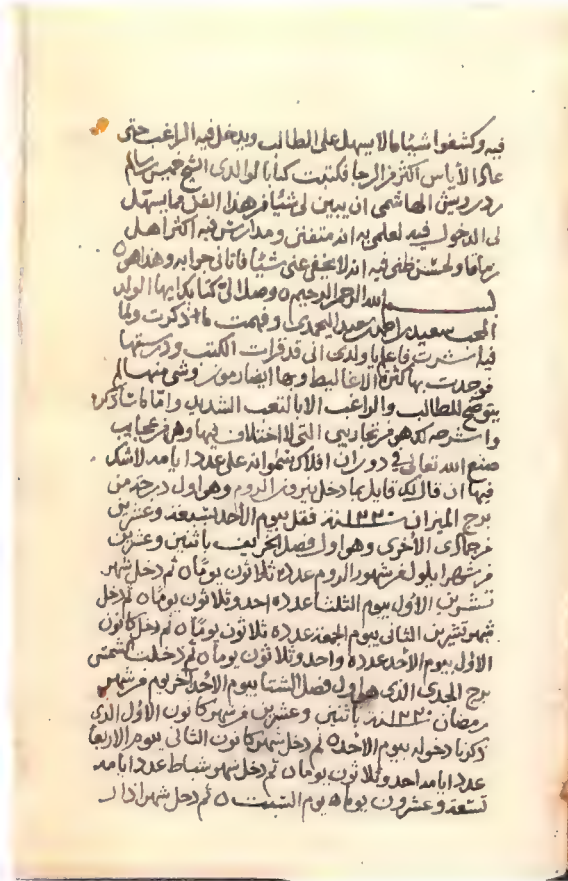 فيه وكشفوا شيئا مالا يسهل على الطالب ويدخل فيه الراغب حتى
عاد الأياس اكثر من الرجا فكتبت كتابا لوالدي الشيخ خميس بن سالم
بن درويش الهاشمي ان يبين لي شيئا من هذا الفن وما يسهل
لي الدخول فيه لعلمي به انه متفنن ومدارس فيه اكثر اهل
زماننا ولحسن ظني فيه انه لا يخفى عني شيئا فاتاني جوابه وهذا هو ه
بسم الله الرحمن الرحيم ه وصل الي كتابك ايها الولد
المحب سعيد بن احمد بن حميد اليحمدي وفهمت ما ذكرت ولما
فيه اشرت فاعلم يا ولدي اني قد قرات الكتب ودرستها
فوجدت بها كثرة الاغاليط وبها ايضا رموز وشي منها لم
يتوضح للطالب والراغب الا بالتعب الشديد واما ما تاذكره
واشرحه لك هو من تجاريبي التي لا اختلاف فيها وهو من عجايب
صنع الله تعالى في دوران افلاك سمواته على عدد ايامه لا شك
فيها ان قال لك قايل بما دخل نيروز الروم وهو اول درجة من
برج الميزان سنة ١٣٣٠ فقل بيوم الأحد تسعة وعشرين
من جمادى الأخرى وهو اول فصل الخريف باثنين وعشرين
من شهر ايلول من شهور الروم عدده ثلاثون يوما ه ثم دخل شهر
تشرين الأول بيوم الثلثا عدده احد وثلاثون يوما ه ثم دخل
شهر تشرين الثاني بيوم الجمعة عدده ثلاثون يوما ه ثم دخل كانون
الأول بيوم الأحد عدده واحد وثلاثون يوما ه ثم دخلت الشمس
برج الجدي الذي هو اول فصل الشتا بيوم الأحد آخر يوم من شهر
رمضان سنة ١٣٣٠ باثنين وعشرين من شهر كانون الأول الذي
ذكرنا دخوله بيوم الأحد ه ثم دخل شهر كانون الثاني بيوم الاربعا
عدد ايامه احد وثلاثون يوما ه ثم دخل شهر شباط عدد ايامه
تسعة وعشرون يوما ه يوم السبت ه ثم دخل شهر اذار